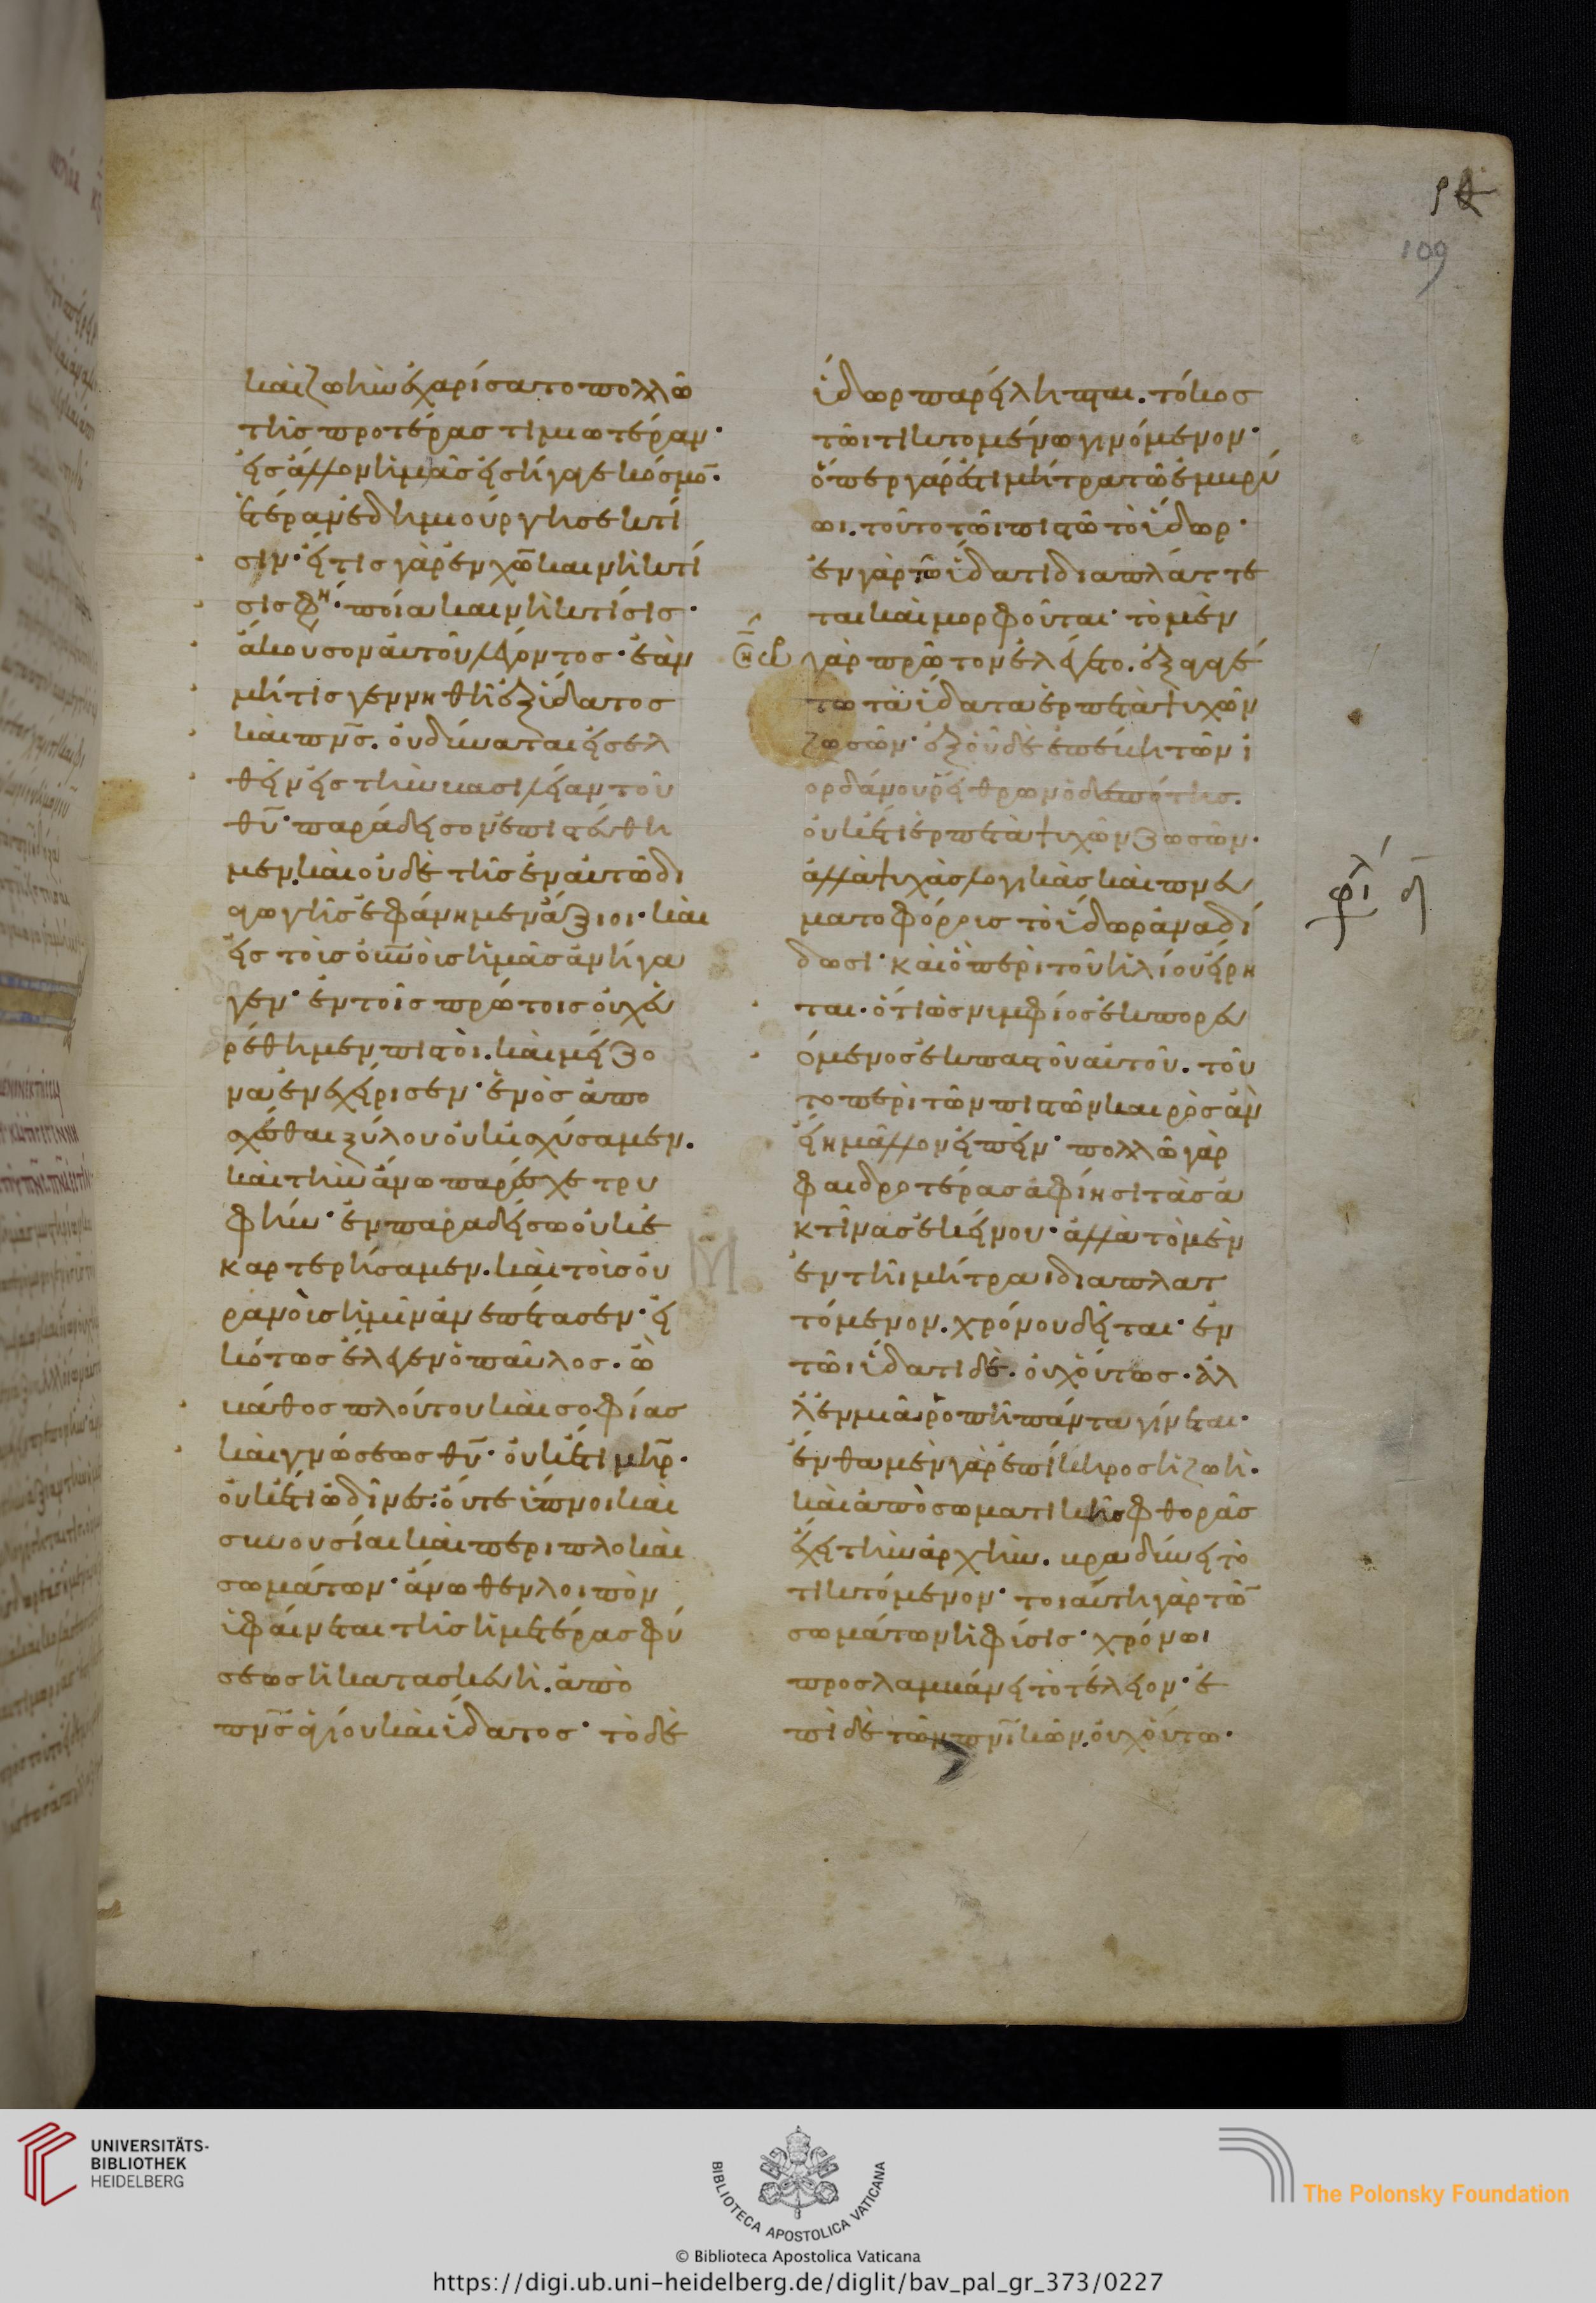 ρθ
109
καὶ ζωὴν ἐχαρίσατο πολλῶ
τῆς προτέρας τιμιωτέραν·
εἰς ἄλλον ἡμᾶς εἰσήγαγε κόσμο̅·
ἑτέραν ἐδημιούργησε κτί
σιν· εἴ τις γὰρ ἐν χω̅ καινὴ κτί
σις φη· ποία καινὴ κτίσις·
ἄκουσον αὐτοῦ λέγοντος· ἐὰν
μή τις γεννηθῆ ἐξ ὕδατος
καὶ πν̅ς. οὐ δύναται εἰσελ
θεῖν εἰς τὴν βασιλείαν τοῦ
θυ̅· παράδεισον ἐπιστεύθη
μεν. καὶ οὐδὲ τῆς ἐν αὐτῶ δι
αγωγῆς ἐφάνημεν ἄξιοι· καὶ
εἰς τοὺς οὐν̅οὺς ἡμᾶς ἀνήγα
γεν· ἐν τοῖς πρώτοις οὐχ εὑ
ρέθημεν πιστοὶ. καὶ μείζο
να ἐνεχείρισεν· ἑνὸς ἀπο
σχέσθαι ξύλου οὐκ ἰσχύσαμεν.
καὶ τὴν ἄνω παρέσχε τρυ
φήν· ἐν παραδείσω οὐκ ἐ
καρτερήσαμεν. καὶ τοὺς οὐ
ρανοὺς ἡμῖν ἀνεπέτασεν· εἰ
κότως ἔλεγεν ὁ παῦλος. ὦ
βάθος πλούτου καὶ σοφίας
καὶ γνώσεως θυ̅· οὐκέτι μηρ̅.
οὐκέτι ὠδῖνες. οὔτε ὕπνοι καὶ
συνουσίαι καὶ περιπλοκαὶ
σωμάτων· ἄνωθεν λοιπὸν
ὑφαίνεται τῆς ἡμετέρας φύ
σεως ἡ κατασκευὴ. ἀπὸ
πν̅ς ἁγίου καὶ ὕδατος· τὸ δὲ
ὕδωρ παρείληπται. τόκος
τῶι τικτομένω γινόμενον·
ὅπερ γάρ ἐστι μήτρα τῶ ἐμβρύ
ωι. τοῦτο τῶι πιστῶ τὸ ὕδωρ·
ἐν γὰρ τῶ ὕδατι διαπλάττε
ται καὶ μορφοῦται· τὸ μὲν
γὰρ πρῶτον ἐλέγετο. ἐξαγαγέ
τω τὰ ὕδατα ἑρπετὰ ψυχῶν
ζωσῶν· ἐξ οὗ δὲ ἐπέβη τῶν ἰ
ορδάνου ῥείθρων ὁ δεσπότης.
οὐκέτι ἑρπετὰ ψυχῶν ζωσῶν.
ἀλλὰ ψυχὰς λογικὰς καὶ πνευ
ματοφόρους τὸ ὕδωρ ἀναδί
δωσι· καὶ ὃ περὶ τοῦ ἡλίου εἴρη
ται· ὅτι ὡς νυμφίος ἐκπορευ
όμενος ἐκ παστοῦ αὐτοῦ. τοῦ
το περὶ τῶν πιστῶν καιρὸς ἂν
εἴη μᾶλλον εἰπεῖν· πολλῶ γὰρ
φαιδροτέρας ἀφίησι τὰς ἀ
κτῖνας ἐκείνου· ἀλλὰ τὸ μὲν
ἐν τῆι μήτραι διαπλατ
τόμενον. χρόνου δεῖται· ἐν
τῶι ὕδατι δὲ. οὐχ οὕτως. ἀλ
λ' ἐν μιᾶ ῥοπῆ πάντα γίνεται.
ἔνθα μὲν γὰρ ἐπίκηρος ἡ ζωὴ.
καὶ ἀπὸ σωματικῆς φθορᾶς
ἔχει τὴν ἀρχὴν. βραδύνει τὸ
τικτόμενον· τοιαύτη γὰρ τῶ̅
σωμάτων ἡ φύσις· χρόνωι
προσλαμβάνει τὸ τέλειον· ἐ
πὶ δὲ τῶν πν̅ικῶν. οὐχ οὕτω.
UNIVERSITÄTS-
BIBLIOTHEK
HEIDELBERG
BIBLIOTECA APOSTOLICA VATICANA
The Polonsky Foundation
© Biblioteca Apostolica Vaticana
https://digi.ub.uni-heidelberg.de/diglit/bav_pal_gr_373/0227